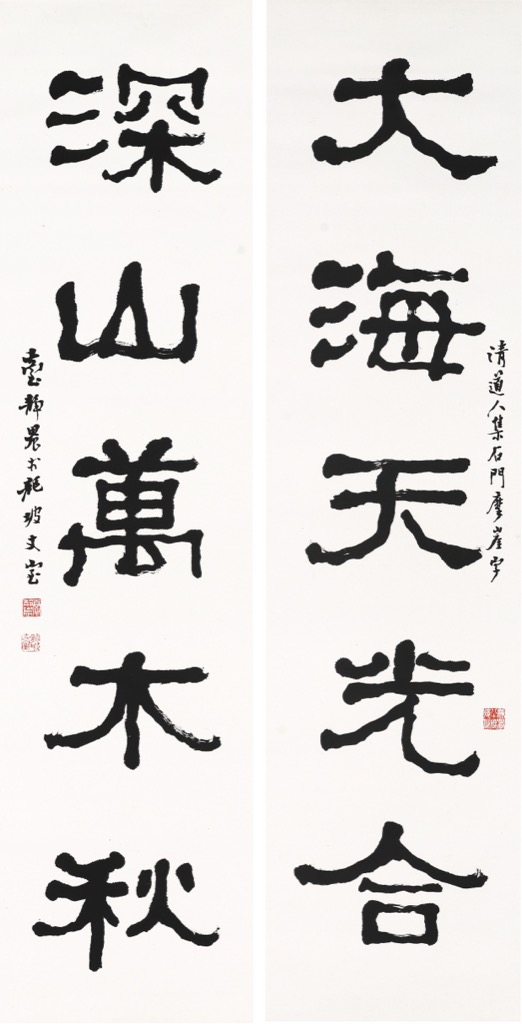 大海天光合
清道人集石門摩崖字
深山萬木秋
臺靜農於龍坡丈室